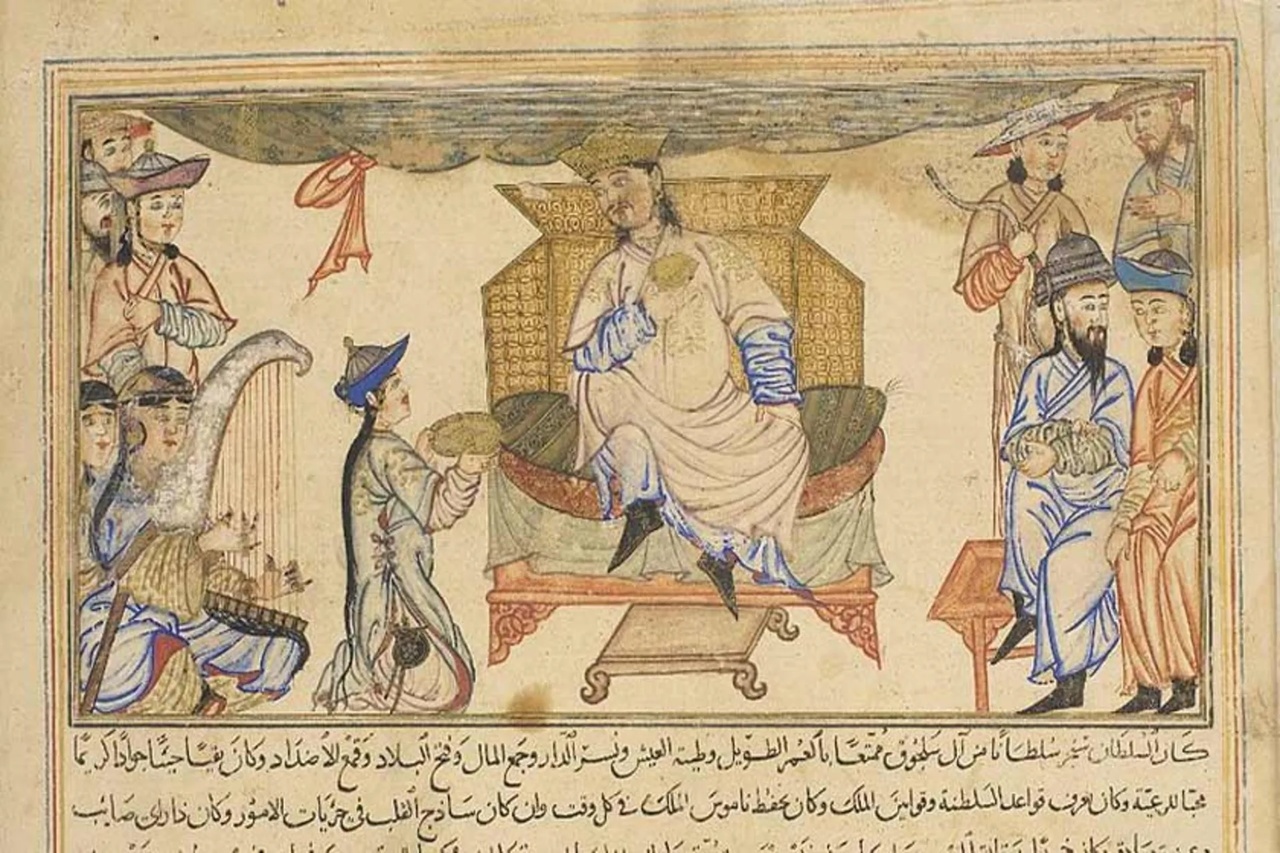 كان السلطان سنجر سلطانا من آل سلجوق ممتعا بالعمر الطويل وطيبة العيش ويسر الدار وجمع المال وفتح البلاد وقمع الاضداد وكان جوادا كريما
محبا للرعية وكان يعرف قواعد السلطنة وقوانين الملك وكان يحفظ ناموس الملك في كل وقت وان كان ساذج القلب في جزيات الامور وكان ذا راي صايب